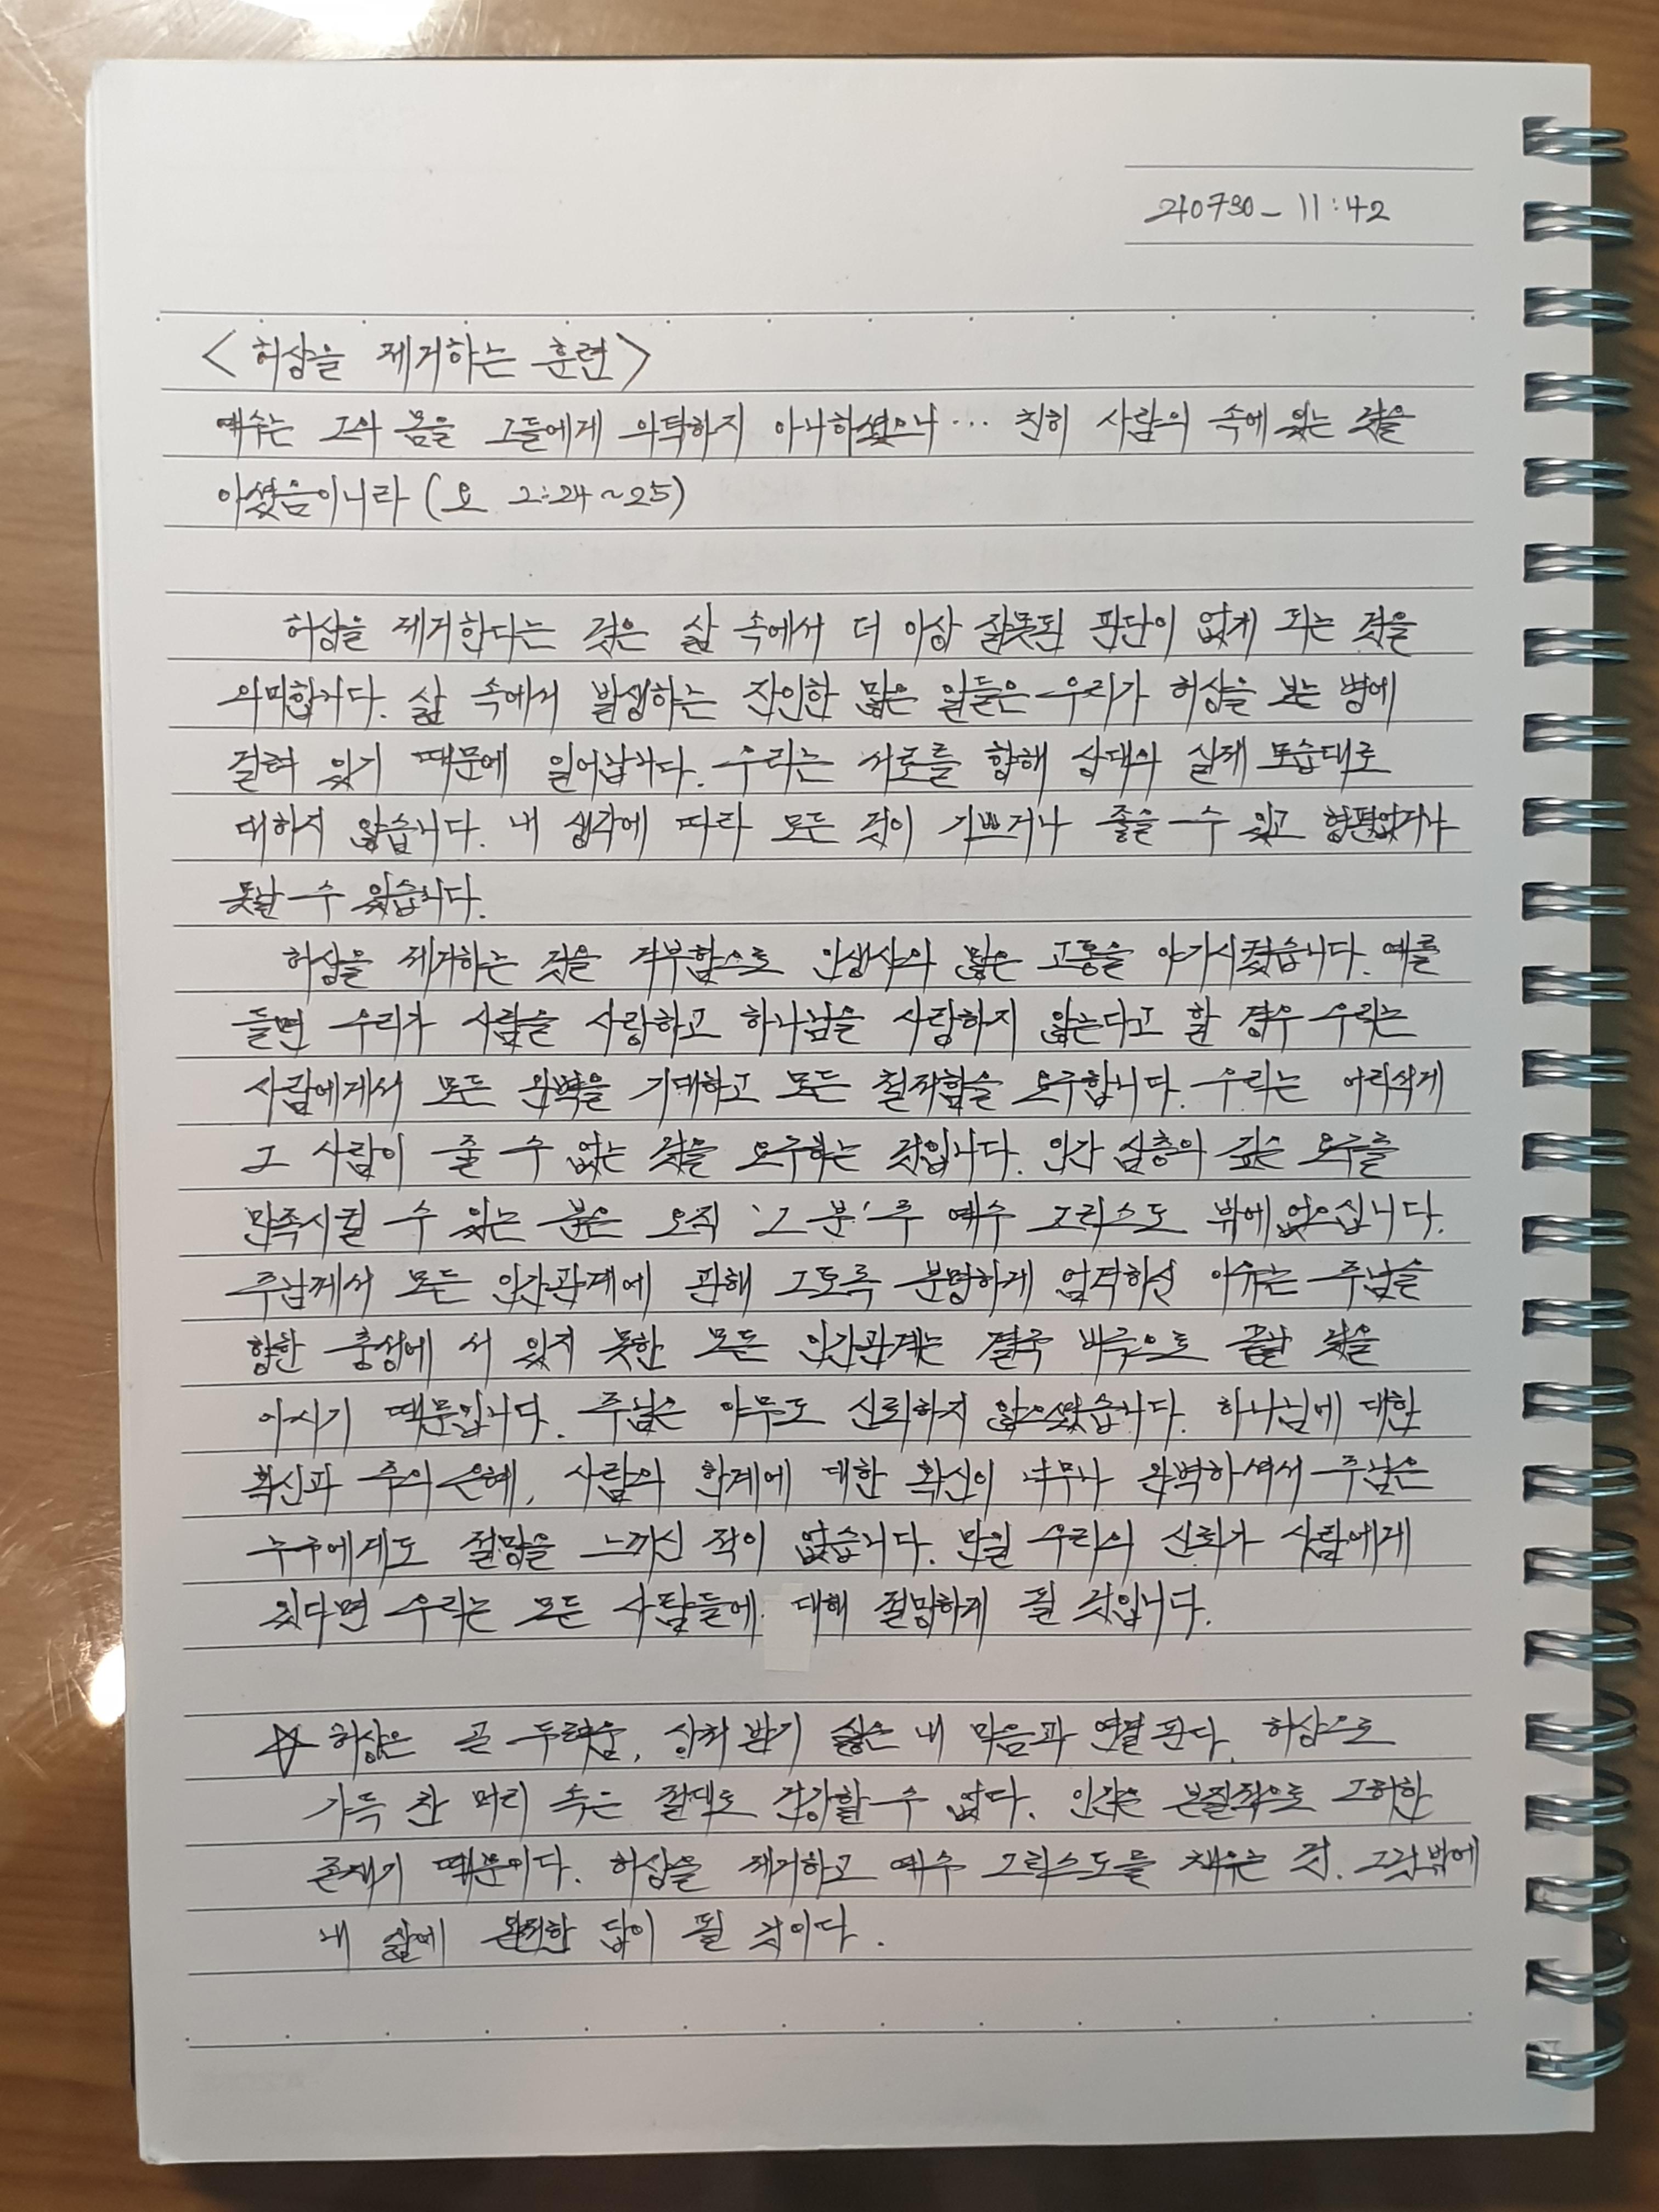 210730_ 11:42
<허상을 제거하는 훈련>
예수는 그의 몸을 그들에게 의탁하지 아니하셨으니... 친히 사람의 속에 있는 것을
아셨음이니라 (요 2:24~25)
허상을 제거한다는 것은 삶 속에서 더 이상 잘못된 판단이 없게 되는 것을
의미합니다. 삶 속에서 발생하는 잔인한 많은 일들은 우리가 허상을 보는 병에
걸려 있기 때문에 일어납니다. 우리는 서로를 향해 상대의 실제 모습대로
대하지 않습니다. 내 생각에 따라 모든 것이 기쁘거나 좋을 수 있고 형편없거나
못날 수 있습니다.
허상을 제거하는 것을 거부함으로 인생사의 많은 고통을 야기시켰습니다. 예를
들면 우리가 사람을 사랑하고 하나님을 사랑하지 않는다고 할 경우 우리는
사람에게서 모든 완벽을 기대하고 모든 철저함을 요구합니다. 우리는 어리석게
그 사람이 줄 수 없는 것을 요구하는 것입니다. 인간 심층의 깊은 요구를
만족시킬 수 있는 분은 오직 '그 분' 주 예수 그리스도 밖에 없으십니다.
주님께서 모든 인간관계에 관해 그토록 분명하게 엄격하신 이유는 주님을
향한 충성에 서 있지 못한 모든 인간관계는 결국 비극으로 끝날 것을
아시기 때문입니다. 주님은 아무도 신뢰하지 않으셨습니다. 하나님에 대한
확신과 주의 은혜, 사람의 한계에 대한 확신이 너무나 완벽하셔서 주님은
누구에게도 절망을 느끼신 적이 없습니다. 만일 우리의 신뢰가 사람에게
있다면 우리는 모든 사람들에 대해 절망하게 될 것입니다.
☆ 허상은 곧 두려움, 상처 받기 싫은 내 마음과 연결 된다. 허상으로
가득 찬 머리 속은 절대로 건강할 수 없다. 인간은 본질적으로 그러한
존재기 때문이다. 허상을 제거하고 예수 그리스도를 채우는 것. 그것 밖에
내 삶에 완전한 답이 될 것이다.